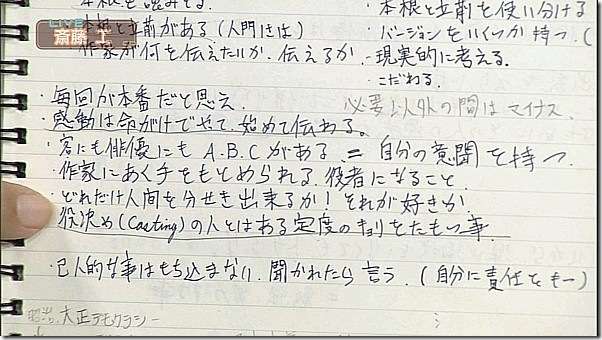 LIVE
斎藤 工
本根と立前がある(人間には)
作家が何を伝えたいか、伝えるか
・本根と立前を使い分ける
・バージョンをいくつか持つ.(
・現実的に考える.
・こだわる.
・毎回が本番だと思え.
必要以外の間はマイナス.
・感動は命がけでやて、始めて伝わる。
・客にも俳優にも A.B.Cがある = 自分の意聞を持つ.
・作家にあく手をもとめられる.役者になること.
・どれだけ人間を分せき出来るか!それが好きか.
役決め(Casting)の人とはある定度のキョリをたもつ事.
・己人的な事はもち込まない.聞かれたら言う.(自分に責任をもー)
大正デモクラシー